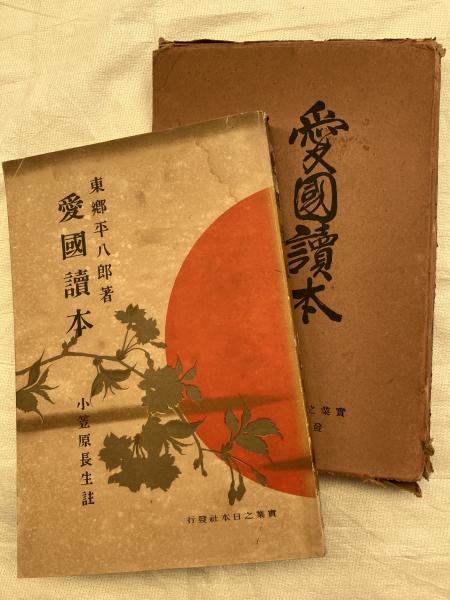 東郷平八郎著
愛國讀本
小笠原長生註
行發社本日之業實
愛國讀本
實業之
發